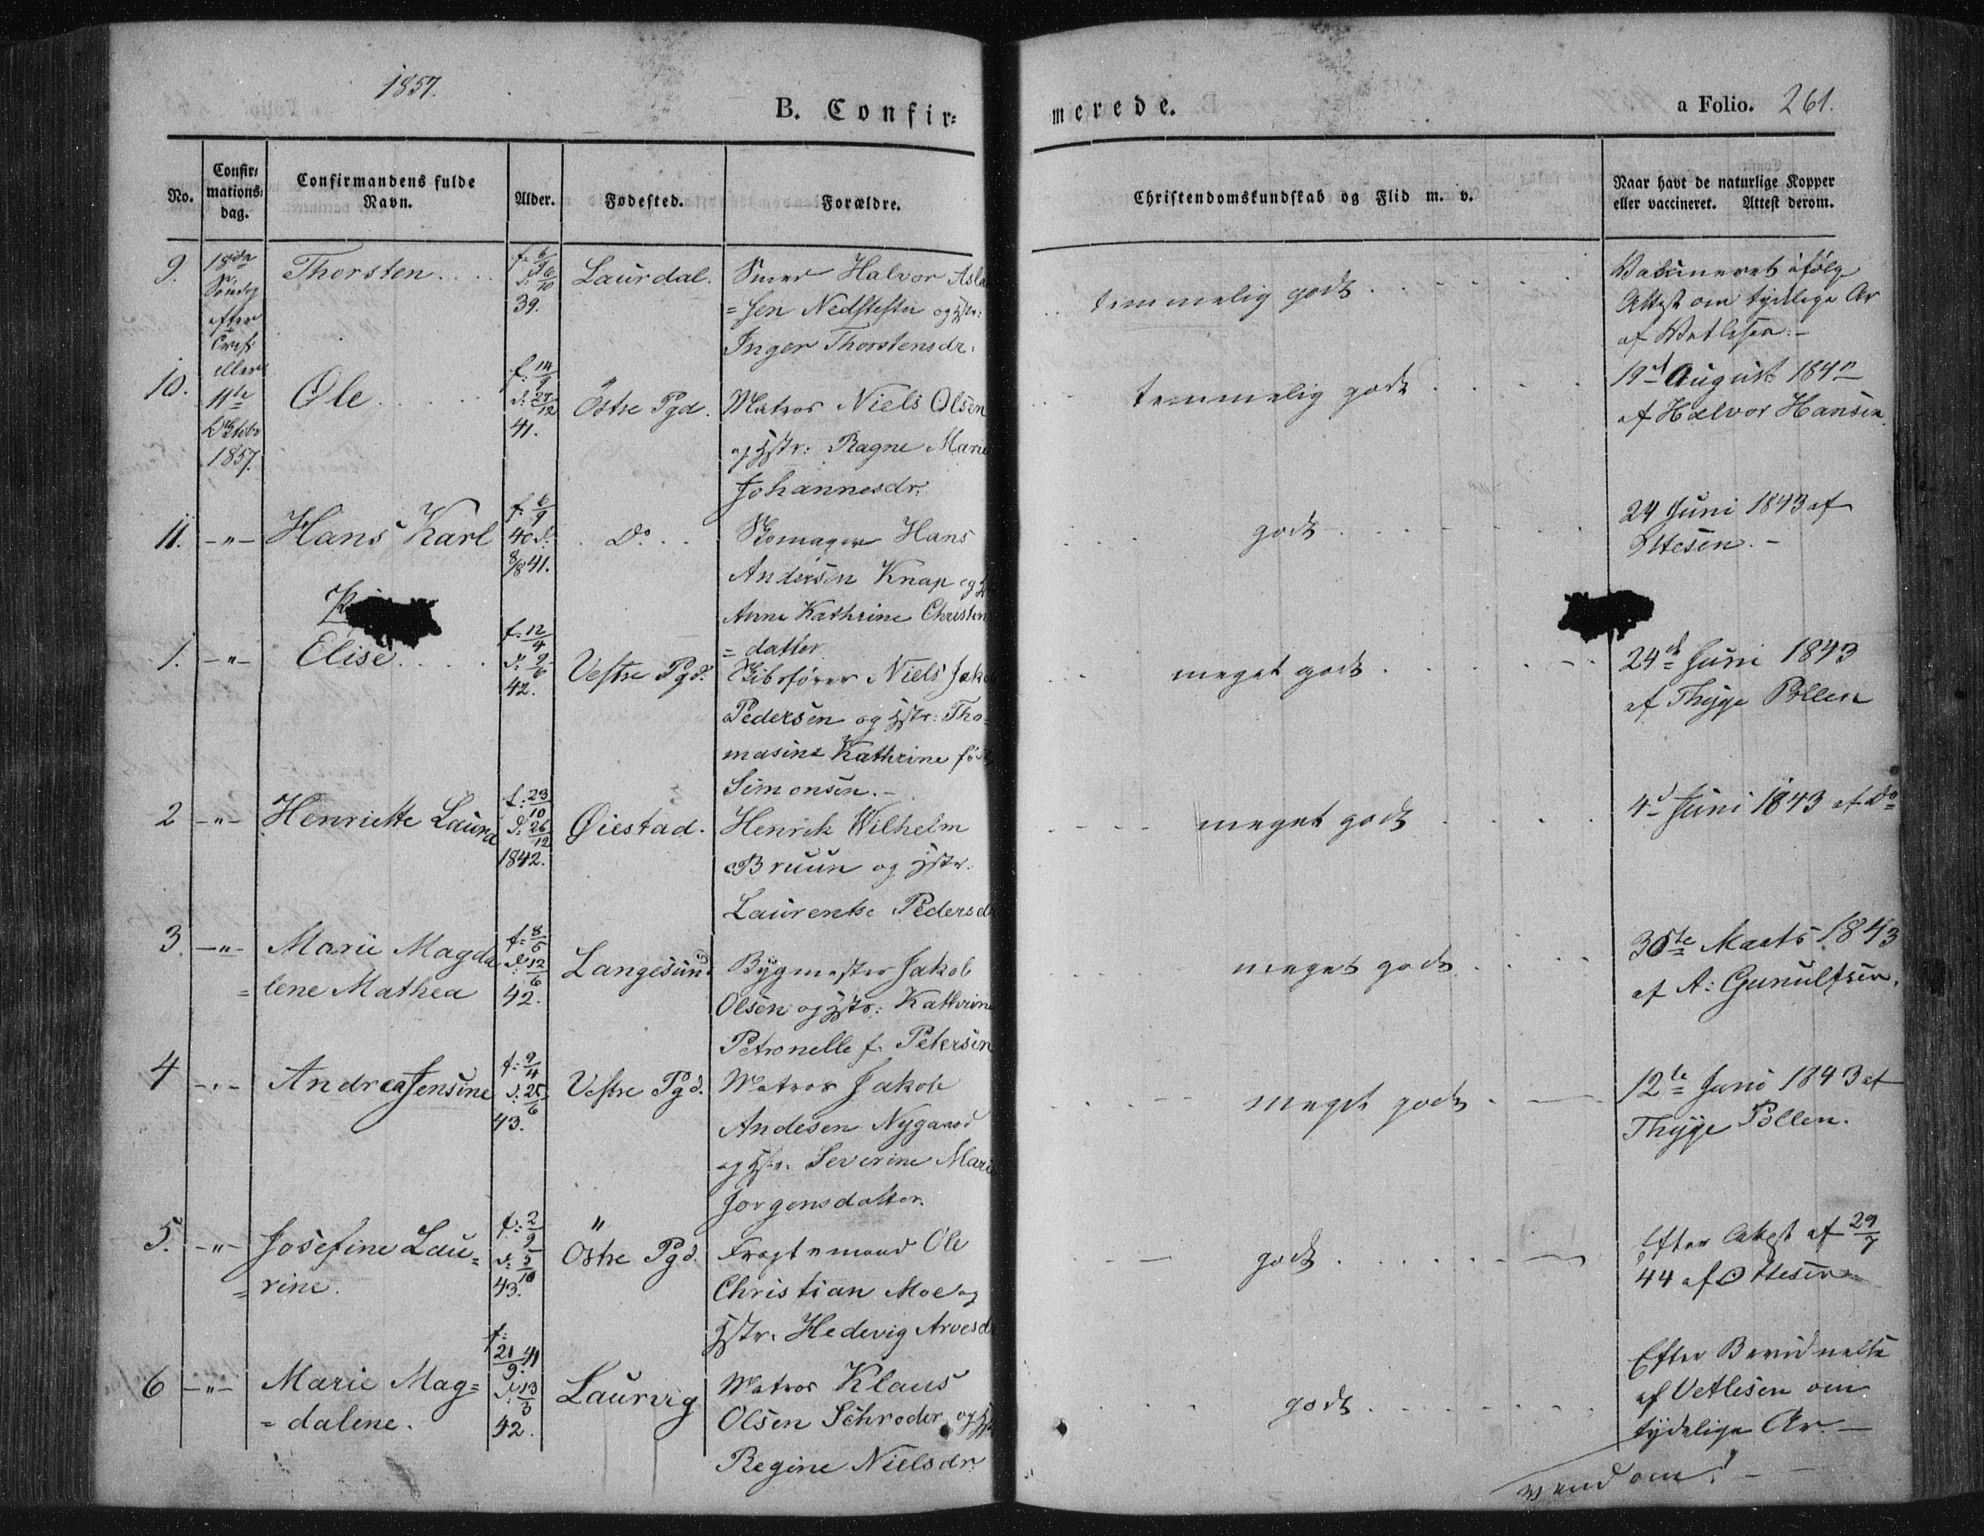 1857.
B. Confirmerede.
a Folio. 261.
No.
Confir-
mations-
dag.
Confirmandens fulde
Navn.
Alder.
Fødested.
Forældre.
Christendomskundskab og Flid m. v.
Naar havt de naturlige Kopper
eller vaccineret. Attest derom.
9.
18de
Søndag
efter
eller
11te
Oktbr
1857.
Thorsten
f. 6/9
d. 6/10
39.
Laurdal.
Halvor Asla
=sen Nedstestu og Hstr:
Inger Thorstensdr.
temmelig godt
Vaccineret ifølge
Attest om tydelige Ar
af Vetlesen.-
10.
Ole
f. 14/9
d. 27/12
41.
Østre Pgd.
Matros Niels Olsen
og Hstr: Ragne Marie
Johannesdr.
temmelig godt
19d August 184
af Halvor Hansen
11.
-"-
Hans Karl
f. 6/9
40 d.
8/8 41.
Do.
Skomager Hans
Andersen Knap og H
Anne Kathrine Christen
=datter.
godt
24 Juni 1843 af
Ottesen.-
1.
-"-
Elise
f. 12/4
d. 9/6
42.
Vestre Pgd.
Skibsfører Niels Jakob
Pedersen og Hstr: Tho-
masine Kathrine født
Simonsen.-
meget godt
24de Juni 1843
af Thyge Pollen
2
-"-
Henriette Laura
f. 23/10
d. 26/12
1842.
Øiestad.
Henrik Wilhelm
Bruun og Hstr.
Laurentse Pedersd
meget godt
4d Juni 1843 af Do
3.
-"-
Marie Magda
=lene Mathea
f. 8/5
d. 12/6
42.
Langesund
Bygmester Jakob
Olsen og Hstr: Kathrine
Petronelle f. Petersen
meget godt
30te Marts 1843
af A: Gunulfsen.
4
-"-
Andrea Jensine
f. 9/4
d. 25/6
43.
Vestre Pgd.
Matros Jakob
Andesen Nygaard
og Hstr. Severine Mari
Jorgensdatter.
meget godt
12te Juni 1843 af
Thyge Pollen.
5.
-"-
Josefine Lau=
=rine.
f. 2/9
d. 5/10
43.
Østre Pgd.
Fragtemand Ole
Christian Moe og
Hstr. Hedevig Arvesd
godt
Efter Attest af 29/7
44 af Ottesen
6
-"-
Marie Mag=
=dalene.
f.
21/9. 41
d. 13/3
42.
Laurvig
Matros Klaus
Olsen Schroder og H
Regine Nielsdr.
godt
Efter Bevidnelse
af Vetlesen om
tydelige Ar.-
vend om!